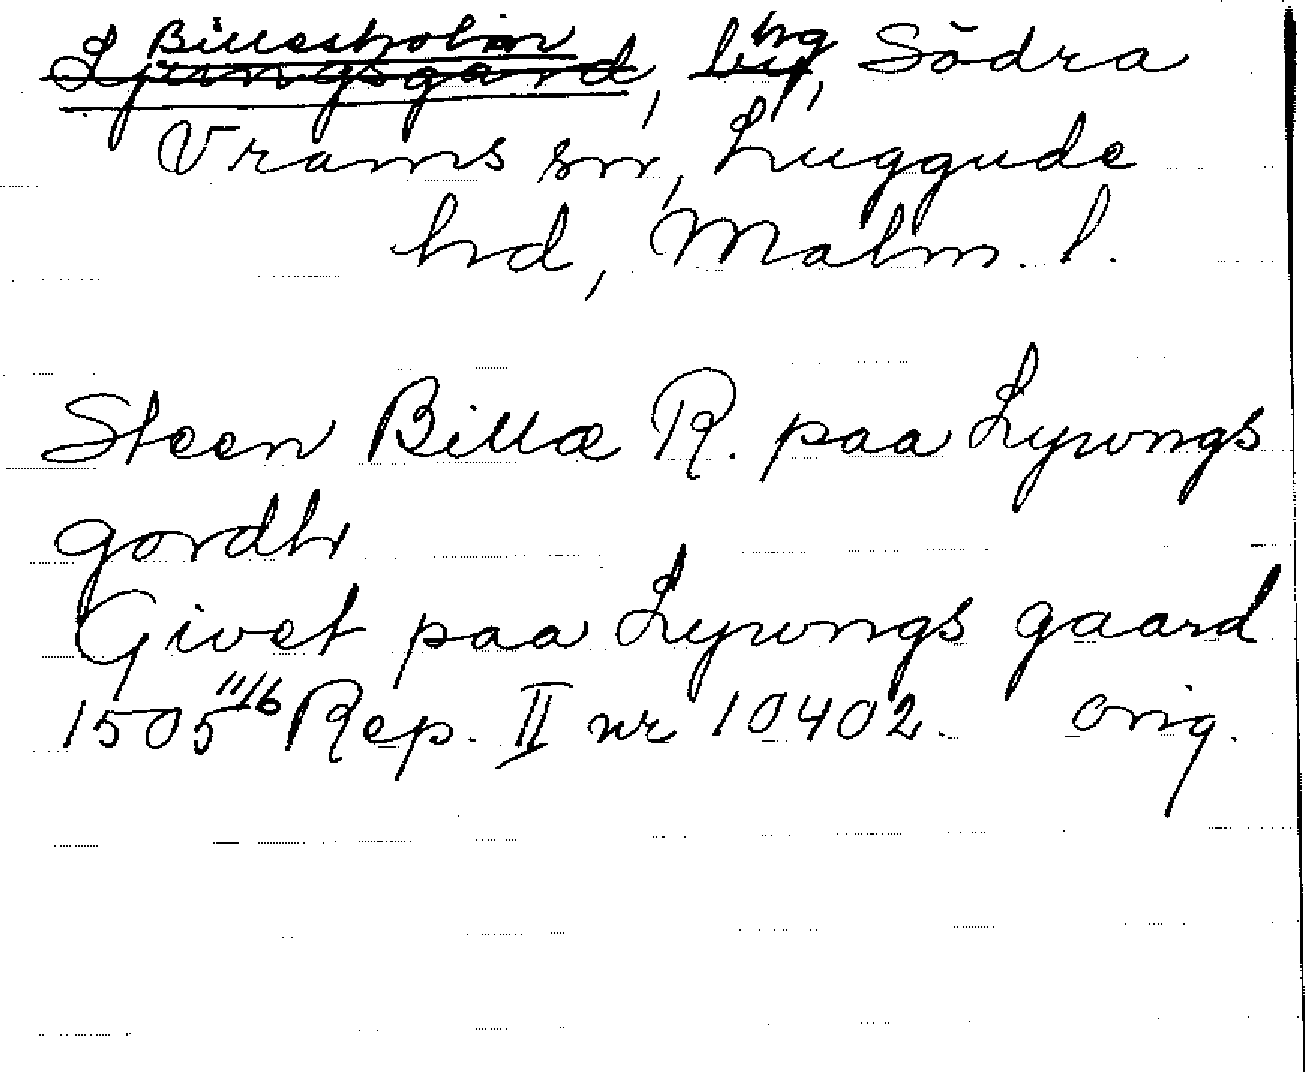 Billesholm hg
Ljungsgård, by, Södra
Vrams sn, Luggude
hd, Malm. l.
Steen Billæ R. paa Lywngs
gordh
Givet paa Lywngs gaard
1505 11/6 Rep. II nr 10402. orig.